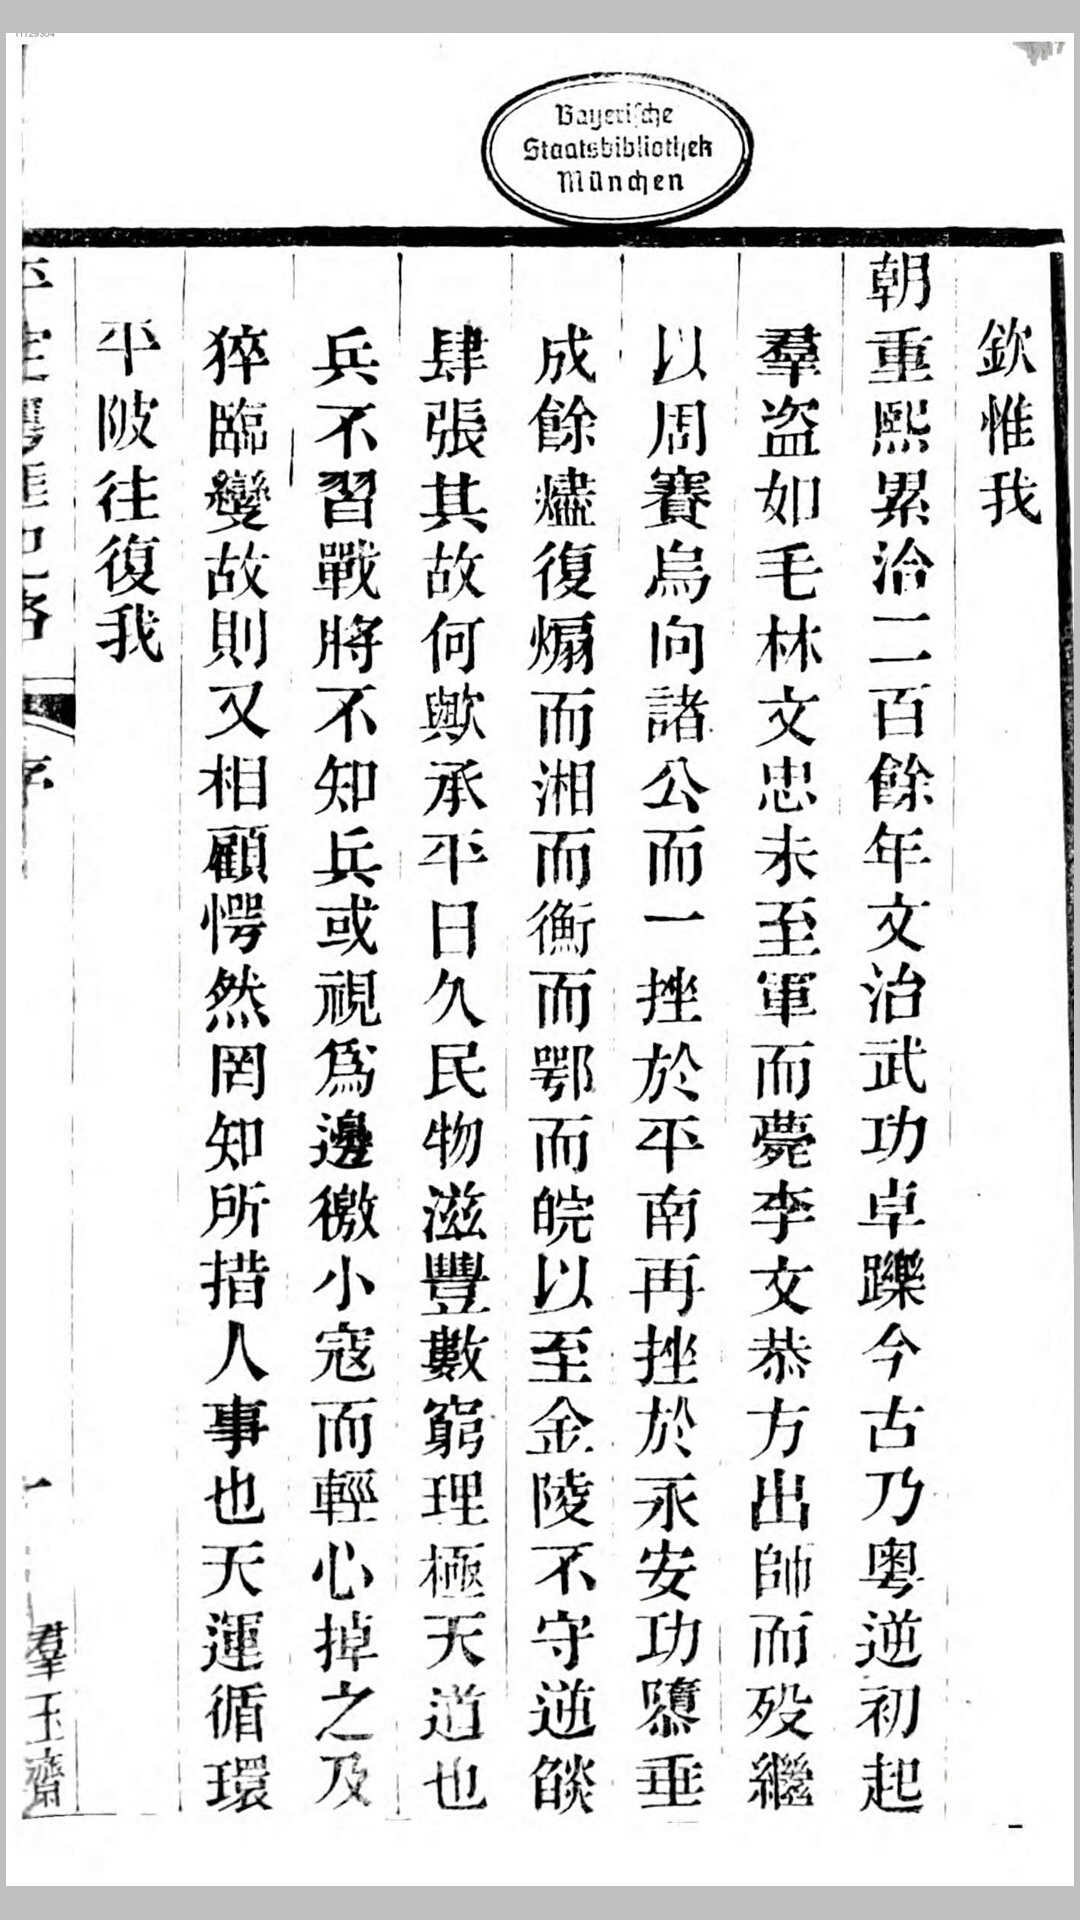 11129304
Bayerische
Staatsbibliothek
München
欽惟我
朝重熙累洽二百餘年文治武功卓躒今古乃粵逆初起
羣盜如毛林文忠未至軍而薨李文恭方出師而歿繼
以周賽烏向諸公而一挫於平南再挫於永安功隳垂
成餘燼復煽而湘而衡而鄂而皖以至金陵不守逆燄
肆張其故何歟承平日久民物滋豐數窮理極天道也
兵不習戰將不知兵或視爲邊徼小寇而輕心掉之及
猝臨變故則又相顧愕然罔知所措人事也天運循環
平陂往復我
平定粵匪紀略 序 一 羣玉齋